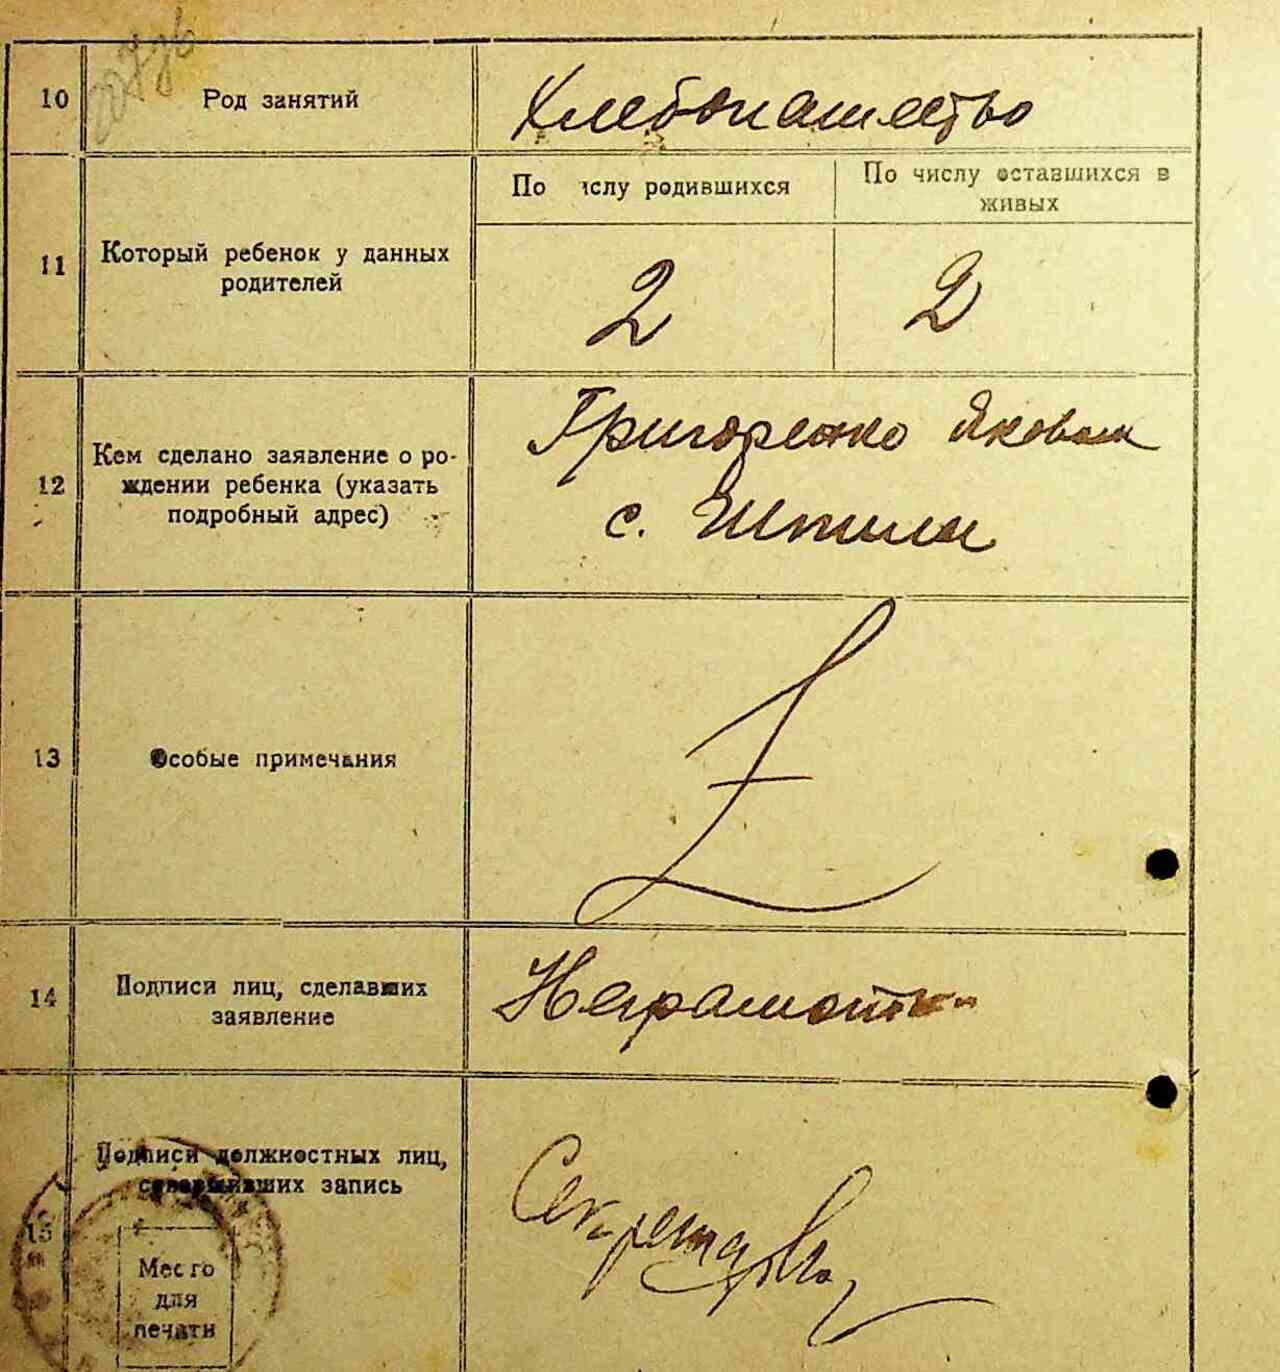 10
Род занятий
Хлебопашество
11
Который ребенок у данных
родителей
По ислу родившихся
По числу оставшихся в
живых
2
2
12
Кем сделано заявление о ро-
ждении ребенка (указать
подробный адрес)
Григоренко Яковом
с. Шпили
13
Особые примечания
14
Подписи лиц, сделавших
заявление
Неграмотн
15
Подписи должностных лиц,
совершивших запись
Место
для
печати
Секретарь